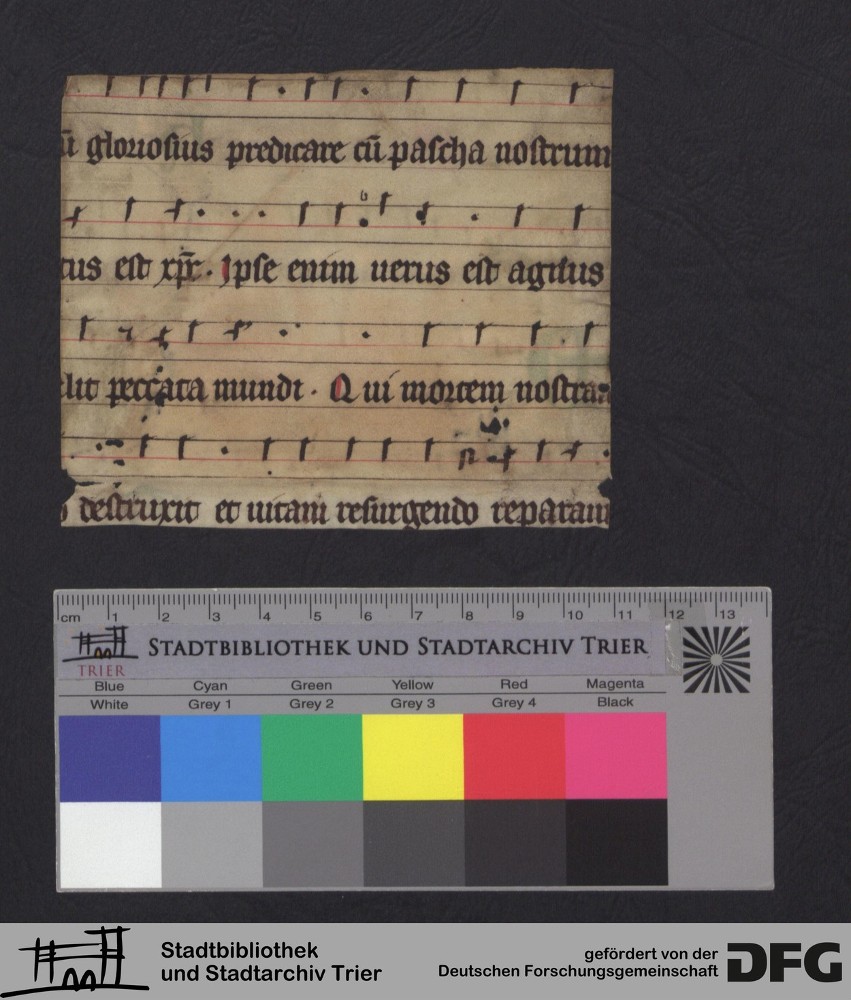 gloriosius predicare cū pascha nostrum
tus est xp̄c. Ipse enim uerus est agnus
lit peccata mundi. Qui mortem nostram
destruxit et uitam resurgendo reparauit
cm 1 2 3 4 5 6 7 8 9 10 11 12 13
TRIER
STADTBIBLIOTHEK UND STADTARCHIV TRIER
Blue Cyan Green Yellow Red Magenta
White Grey 1 Grey 2 Grey 3 Grey 4 Black
Stadtbibliothek
und Stadtarchiv Trier
gefördert von der
Deutschen Forschungsgemeinschaft
DFG